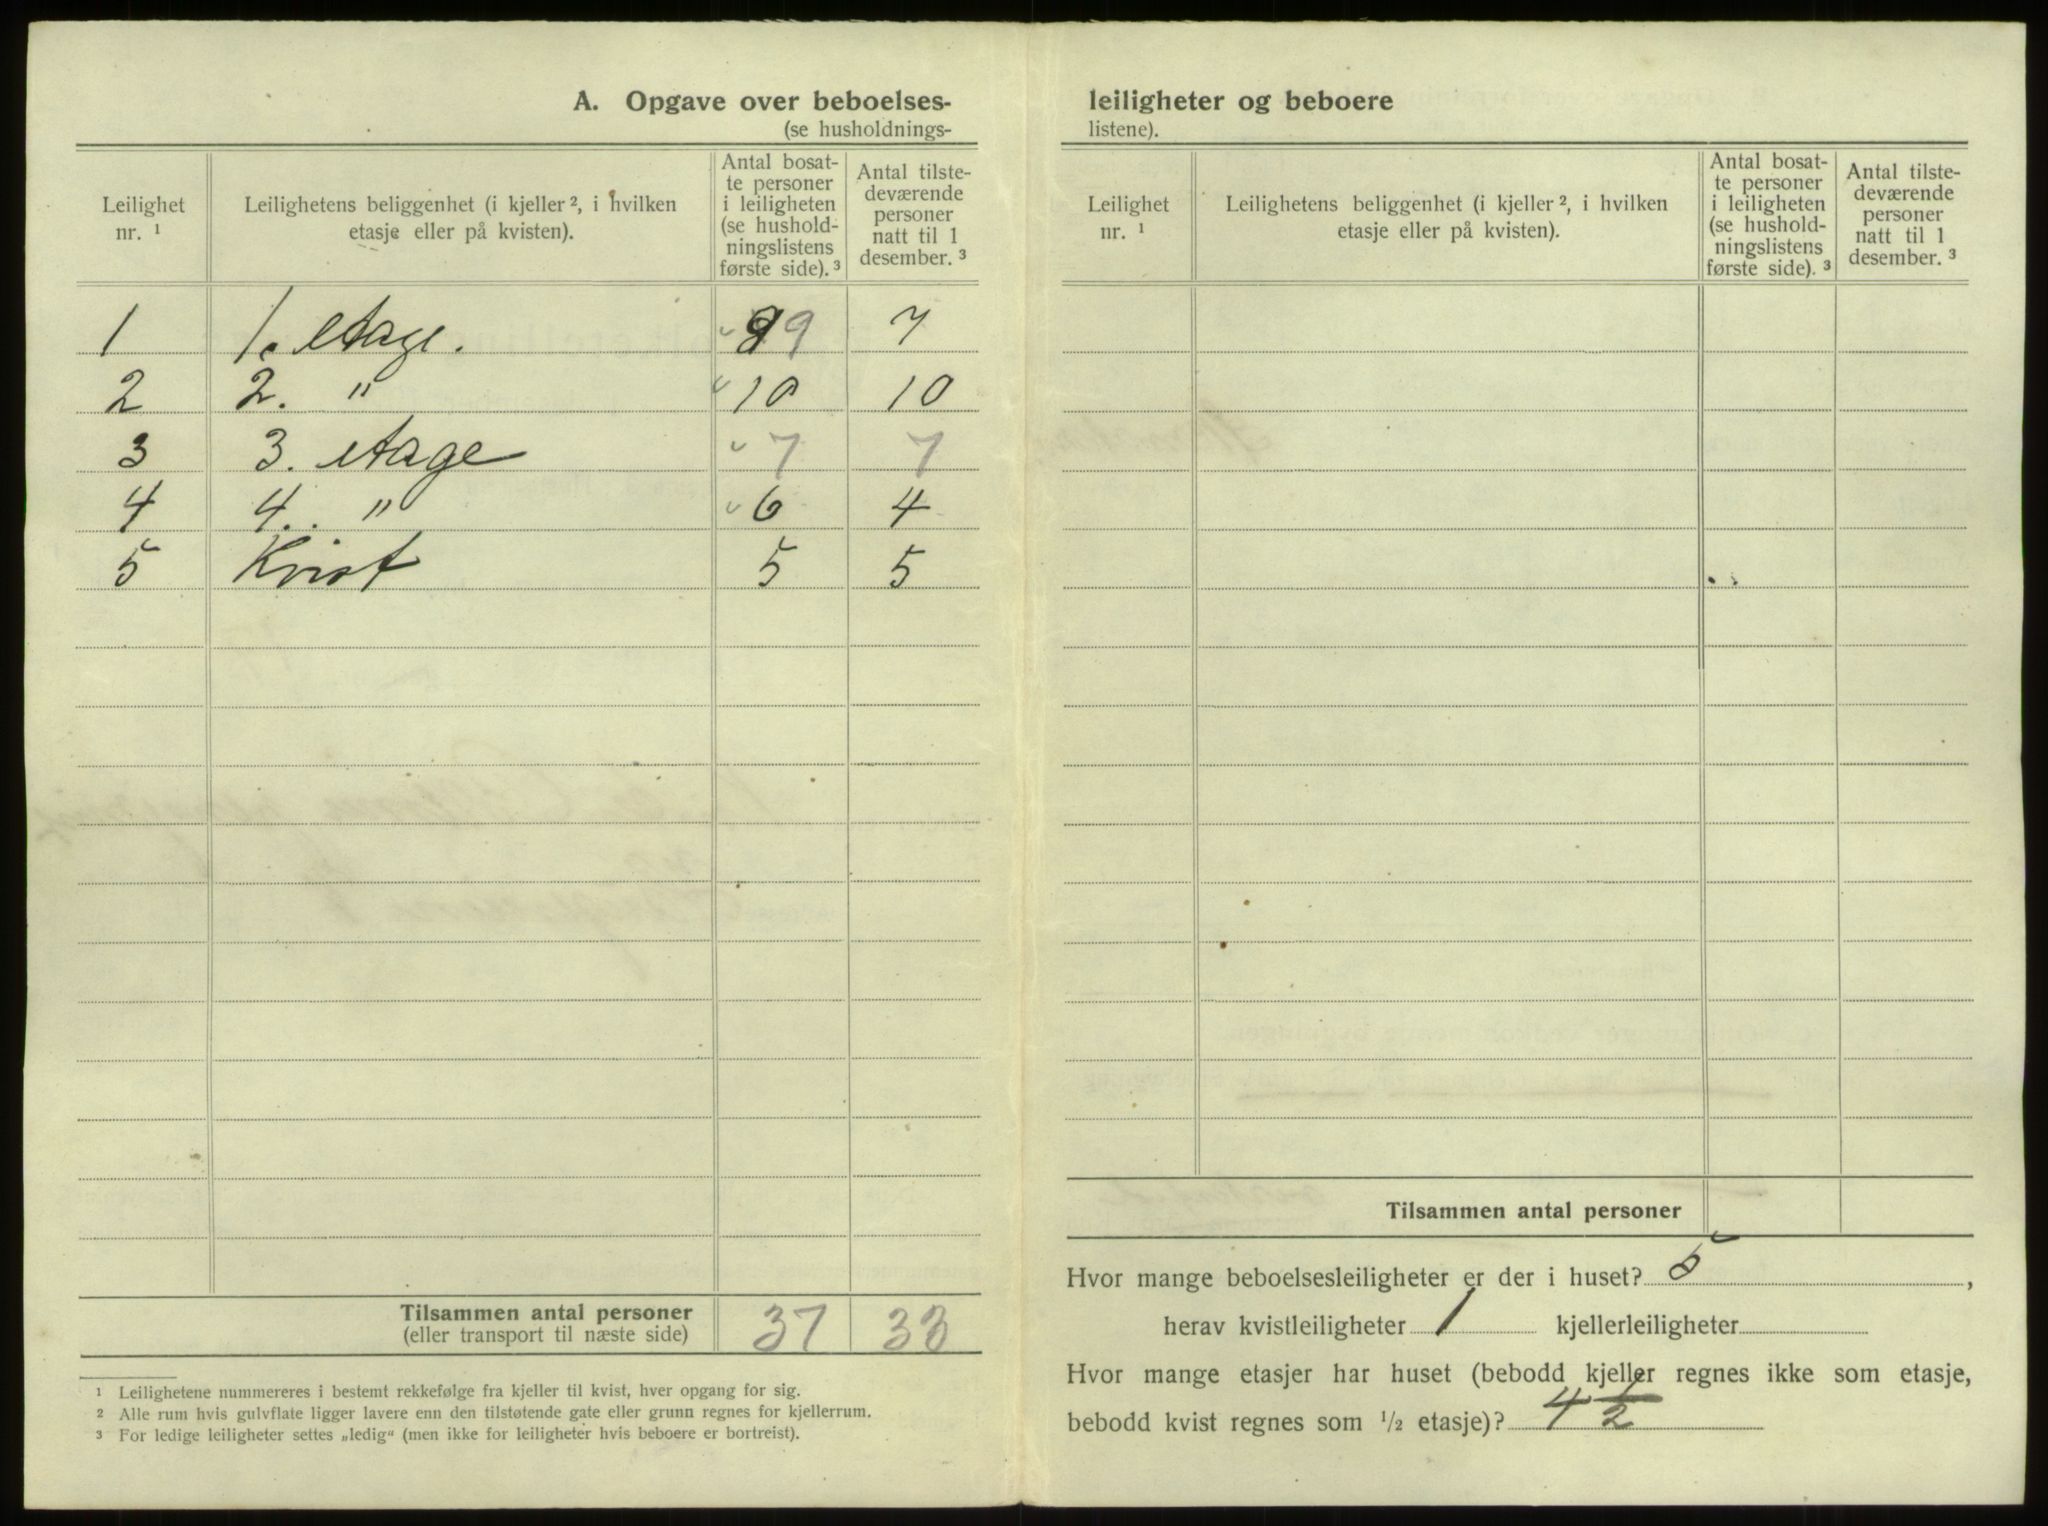 A. Opgave over beboelses-
(se husholdnings-
Leilighet nr. ¹
Leilighetens beliggenhet (i kjeller ², i hvilken etasje eller på kvisten).
Antal bosat-
te personer
i leiligheten
(se hushold-
ningslistens
første side). ³
Antal tilste-
deværende
personer
natt til 1
desember. ³
1 1. etage. 9 7
2 2. " 10 10
3 3. etage 7 7
4 4. " 6 4
5 Kvist 5 5
Tilsammen antal personer 37 33
(eller transport til næste side)
¹ Leilighetene nummereres i bestemt rekkefølge fra kjeller til kvist, hver opgang for sig.
² Alle rum hvis gulvflate ligger lavere enn den tilstøtende gate eller grunn regnes for kjellerrum.
³ For ledige leiligheter settes „ledig“ (men ikke for leiligheter hvis beboere er bortreist).
leiligheter og beboere
listene).
Leilighet nr. ¹
Leilighetens beliggenhet (i kjeller ², i hvilken etasje eller på kvisten).
Antal bosat-
te personer
i leiligheten
(se hushold-
ningslistens
første side). ³
Antal tilste-
deværende
personer
natt til 1
desember. ³
Tilsammen antal personer
Hvor mange beboelsesleiligheter er der i huset? 5,
herav kvistleiligheter 1 kjellerleiligheter
Hvor mange etasjer har huset (bebodd kjeller regnes ikke som etasje,
bebodd kvist regnes som ½ etasje)? 4 ½